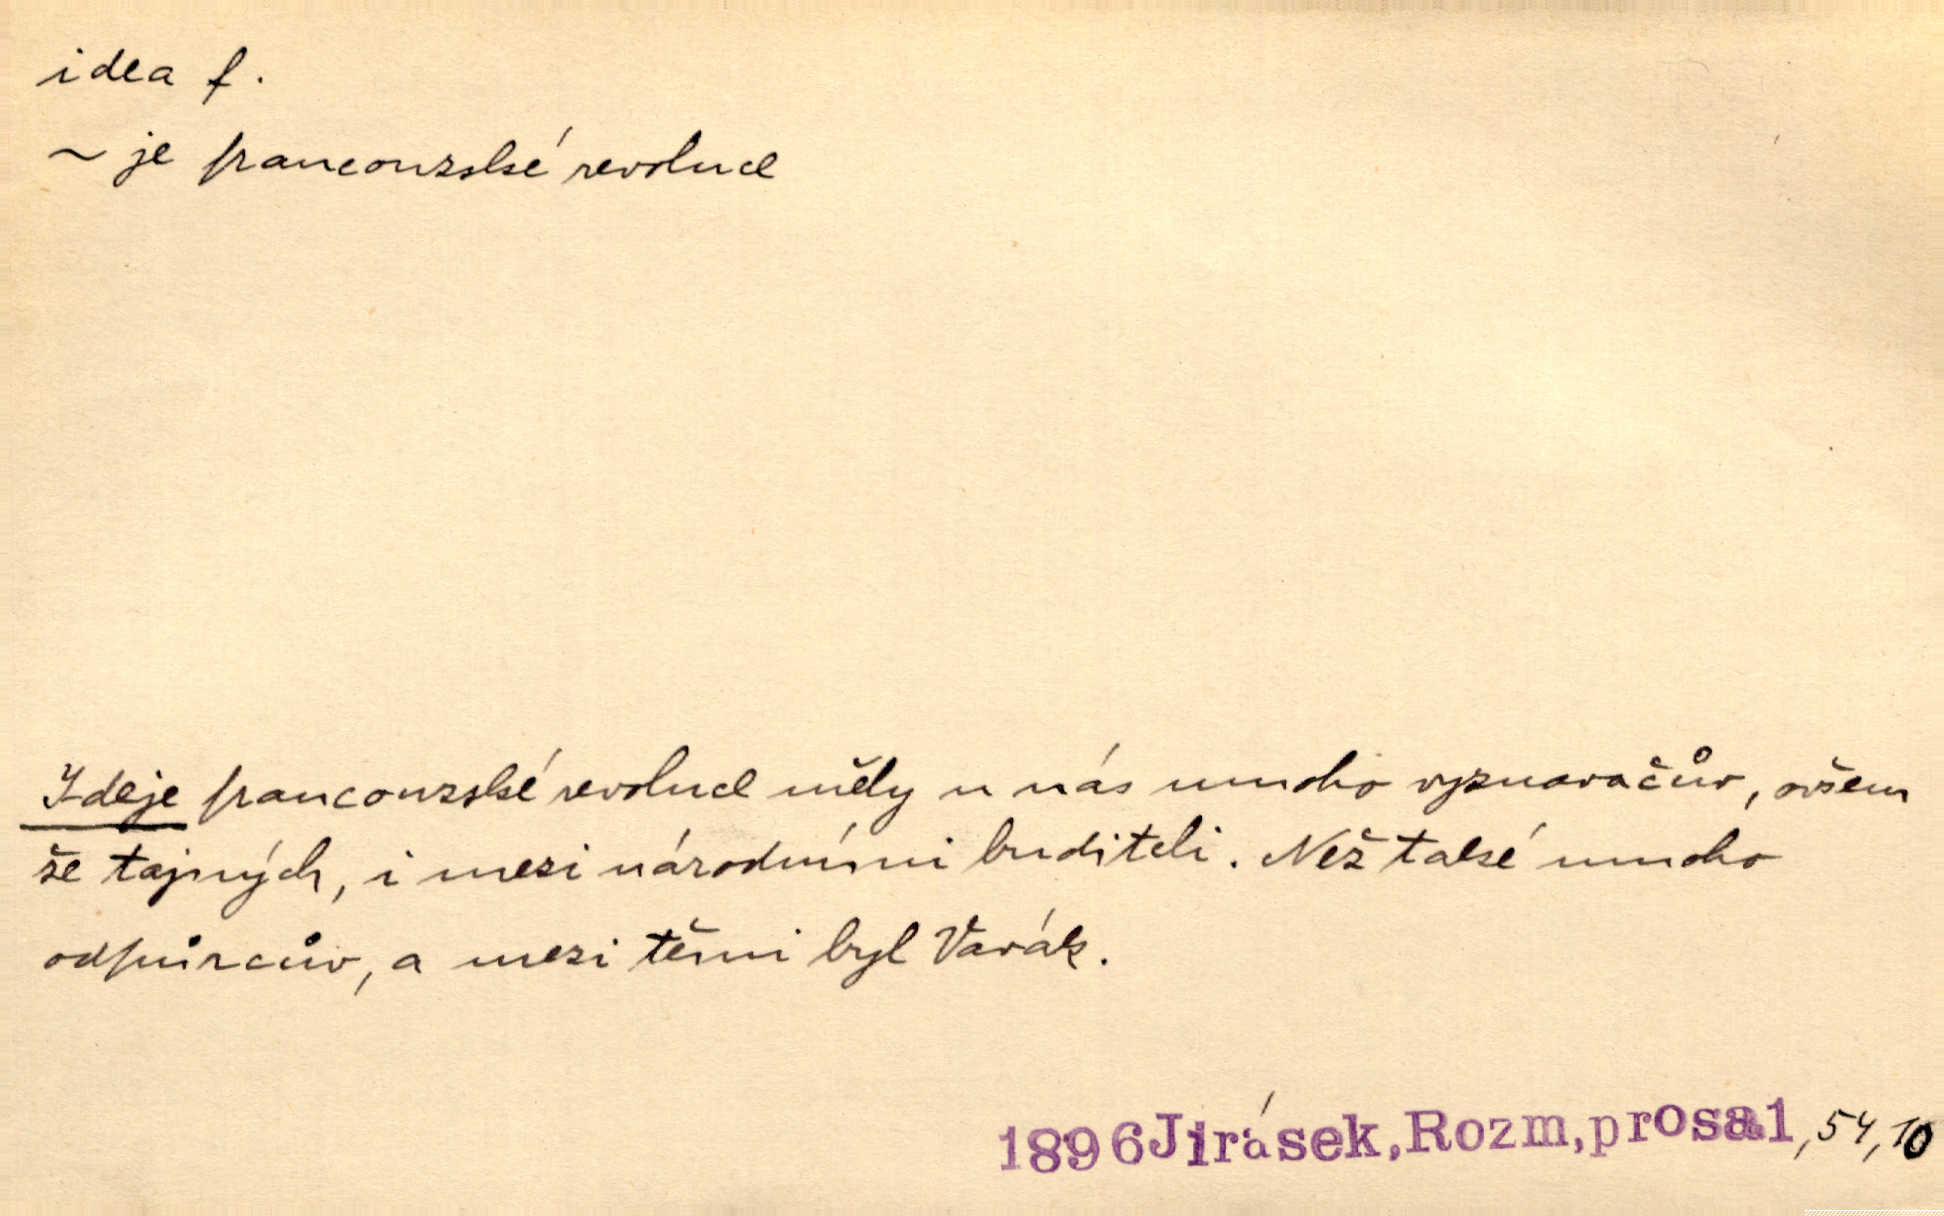 idea f.
~je francouzské revoluce
Ideje francouzské revoluce měly u nás mnoho vyznavačův, ovšem
že tajných, i mezi národními buditeli. Než také mnoho
odpůrcův, a mezi těmi byl Vavák.
1896 Jirásek, Rozm, prosa 1, 54, 10